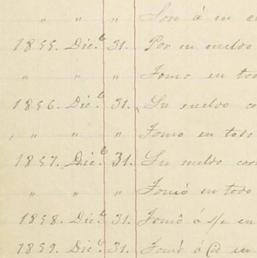 " " " Son á su
1855. Dic.e 31. Por su sueldo
" " " Tomó en todo
1856. Dic.e 31. Su sueldo
" " " Tomo en todo
1857. Dic.e 31. Su sueldo
" " " Tomó en todo
1858. Dic.e 31. Tomó á en
1859. Dic.e 31. Tomó á en